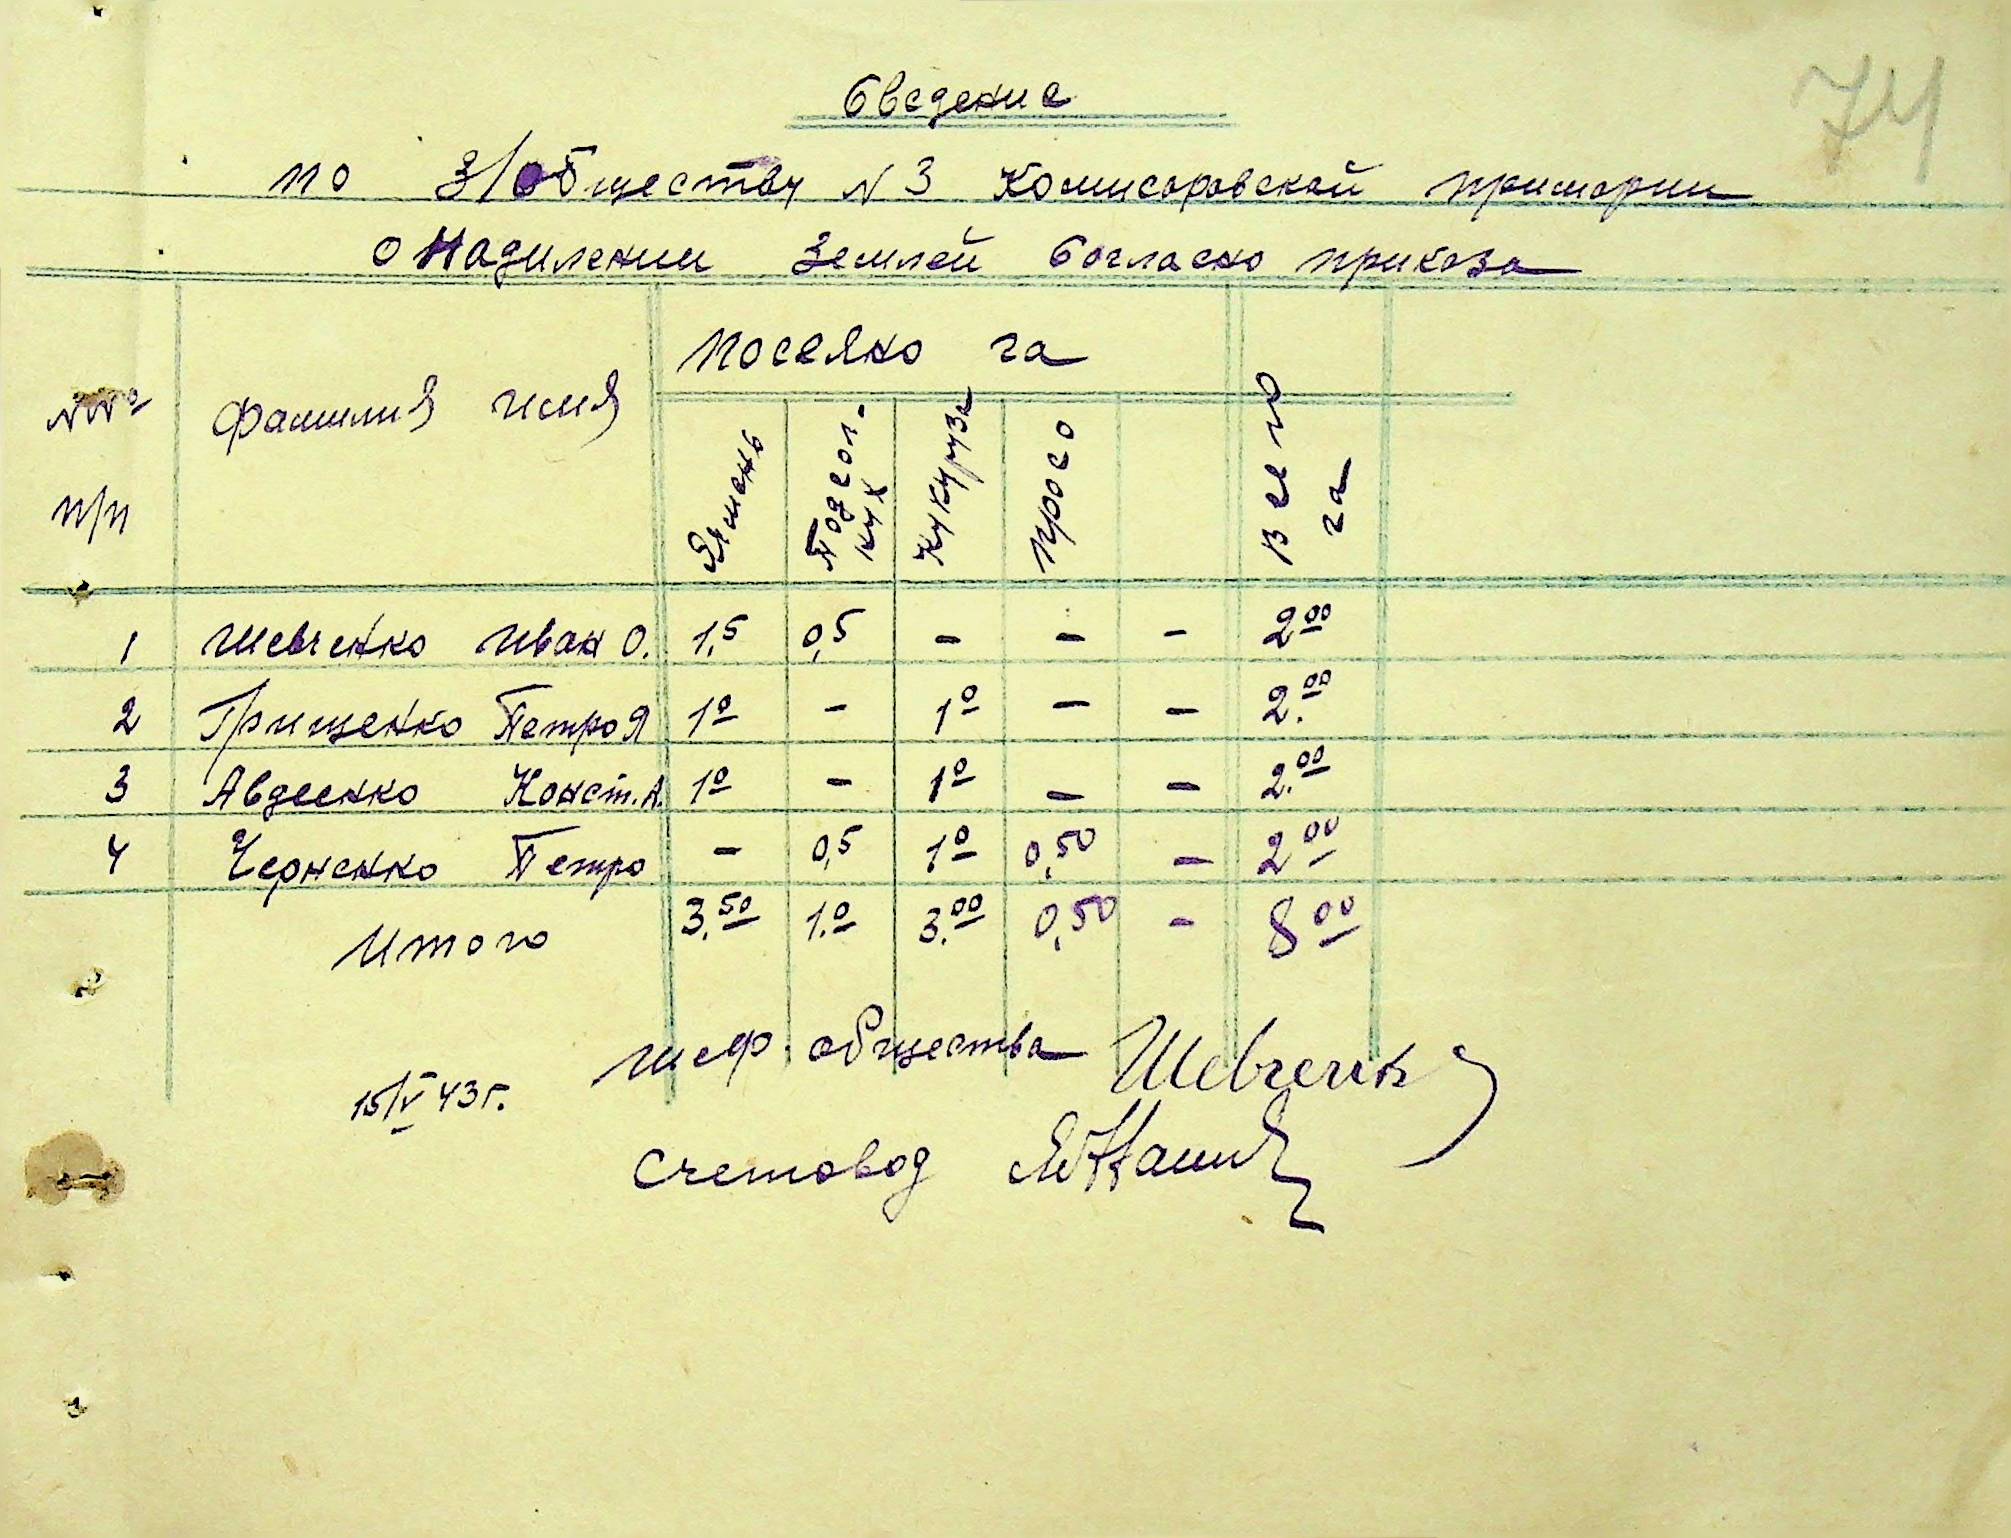 74
Сведение
по З/обществу N 3 Комисаровской примарии
о Надилении Землей Согласно приказа
NNº п/п Фамилия имя посеяно га Всего га
Ячмень Подсол-кух Кукуруза просо
1 Шевченко Иван О. 1,5 0,5 - - - 2 00
2 Грищенко Петро Я 1 0 - 1 0 - - 2. 00
3 Авдеенко Конст. А. 1 0 - 1 0 - - 2. 00
4 Черненко Петро - 0,5 1 0 0,50 - 2 00
Итого 3. 50 1. 0 3. 00 0,50 - 8 00
шеф. общества Шевченк
15/V 43 г.
Счетовод